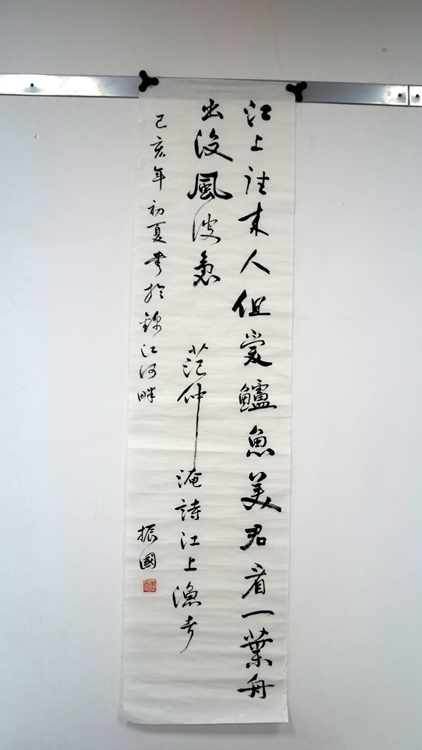 江上往来人但爱鱸魚美君看一葉舟
出没風波裏　范仲淹詩江上漁者
己亥年初夏書於錦江河畔　振國